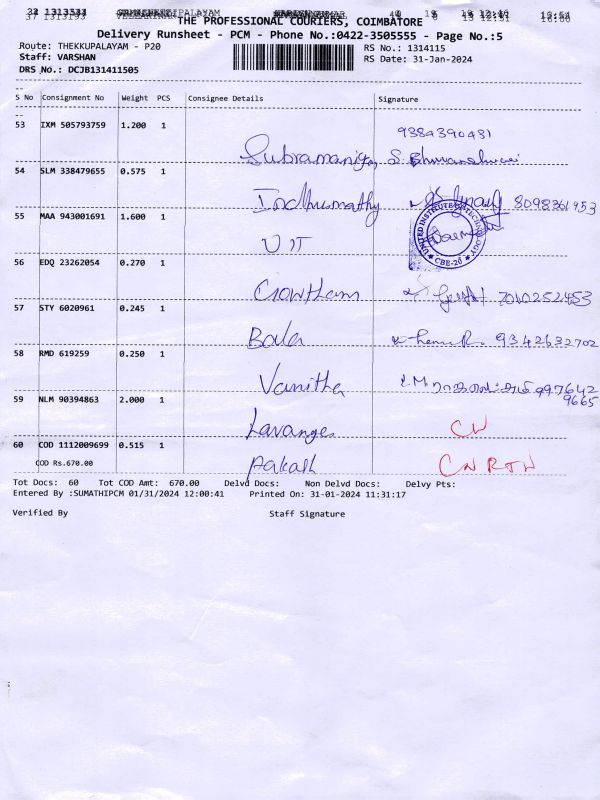 THE PROFESSIONAL COURIERS, COIMBATORE
Delivery Runsheet - PCM - Phone No.:0422-3505555 - Page No.:5
Route: THEKKUPALAYAM - P20 RS No.: 1314115
Staff: VARSHAN RS Date: 31-Jan-2024
DRS No.: DCJB131411505
S No Consignment No Weight PCS Consignee Details Signature
53 IXM 505793759 1.200 1 9384390431
Subramaniya S. Bhuvaneshwari
54 SLM 338479655 0.575 1
Indhumathy 8098361953
55 MAA 943001691 1.600 1 UNITED INSTITUTE OF TECHNOLOGY
UIT
CBE-20
56 EDQ 23262054 0.270 1
Gowtham 7010252453
57 STY 6020961 0.245 1
Bala 9342632702
58 RMD 619259 0.250 1
Vanitha 997642
59 NLM 90394863 2.000 1 9665
Lavanges CN
60 COD 1112009699 0.515 1
COD Rs.670.00 Aakash CN RTN
Tot Docs: 60 Tot COD Amt: 670.00 Delvd Docs: Non Delvd Docs: Delvy Pts:
Entered By :SUMATHIPCM 01/31/2024 12:00:41 Printed On: 31-01-2024 11:31:17
Verified By Staff Signature